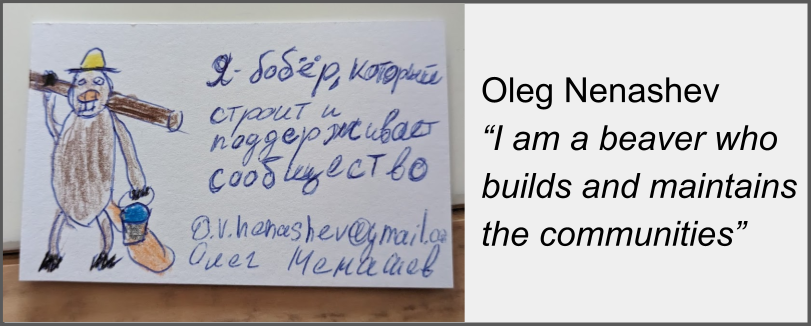 Я - бобёр, который
строит и
поддерживает
сообщество
O.V.nenashev@gmail.co
Олег Ненашев
Oleg Nenashev
“I am a beaver who
builds and maintains
the communities”